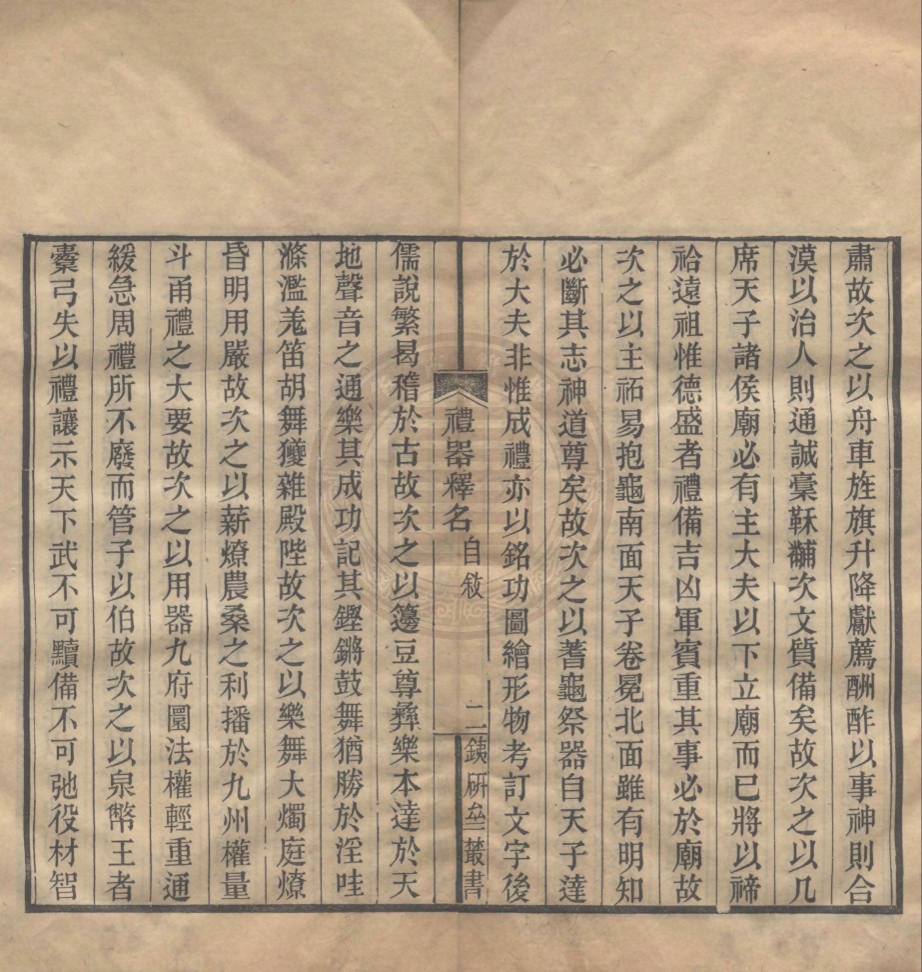 肅故次之以舟車旌旗升降獻薦酬酢以事神則合
漠以治人則通誠稾靺黼次文質備矣故次之以几
席天子諸侯廟必有主大夫以下立廟而已將以禘
祫遠祖惟德盛者禮備吉凶軍賓重其事必於廟故
次之以主祏易抱龜南面天子卷冕北面雖有明知
必斷其志神道尊矣故次之以蓍龜祭器自天子達
於大夫非惟成禮亦以銘功圖繪形物考訂文字後
禮器釋名 自敘 二 鐵研叢書
儒說繁曷稽於古故次之以籩豆尊彝樂本達於天
地聲音之通樂其成功記其鏗鏘鼓舞猶勝於淫哇
滌濫羗笛胡舞獶雜殿陛故次之以樂舞大燭庭燎
昏明用嚴故次之以薪燎農桑之利播於九州權量
斗甬禮之大要故次之以用器九府圜法權輕重通
緩急周禮所不廢而管子以伯故次之以泉幣王者
櫜弓矢以禮讓示天下武不可黷備不可弛役材智